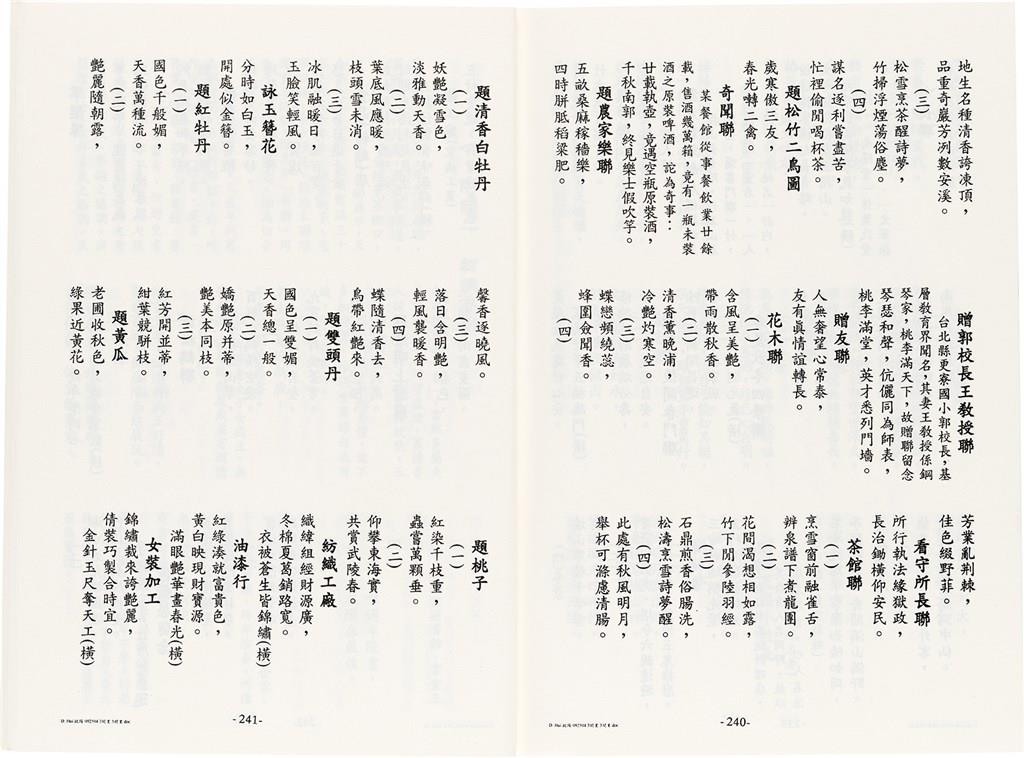 地生名種清香誇凍頂，
品重奇巖芳冽數安溪。
(三)
松雪烹茶醒詩夢，
竹掃浮煙蕩俗塵。
(四)
謀名逐利嘗盡苦，
忙裡偷閒喝杯茶。
題松竹二鳥圖
歲寒傲三友，
春光囀二禽。
奇聞聯
某餐館從事餐飲業廿餘
載，售酒幾萬箱，竟有一瓶未裝
酒之原裝啤酒，詑為奇事：
廿載執壺，竟遇空瓶原裝酒，
千秋南郭，終見樂士假吹竽。
題農家樂聯
五畝桑麻稼穡樂，
四時胼胝稻粱肥。
贈郭校長王教授聯
台北縣更寮國小郭校長，基
層教育界聞名，其妻王教授係鋼
琴家，桃李滿天下，故贈聯留念
琴瑟和聲，伉儷同為師表，
桃李滿堂，英才悉列門墻。
贈友聯
人無奢望心常泰，
友有真情誼轉長。
花木聯
(一)
含風呈美艷，
帶雨散秋香。
(二)
清香薰晚浦，
冷艷灼寒空。
(三)
蝶戀頻繞蕊，
蜂圍僉聞香。
(四)
芳業亂荊棘，
佳色綴野菲。
看守所長聯
所行執法緣獄政，
長治鋤橫仰安民。
茶館聯
(一)
烹雪窗前融雀舌，
辨泉譜下煮龍團。
(二)
花間渴想相如露，
竹下閒參陸羽經。
(三)
石鼎煎香俗腸洗，
松濤烹雪詩夢醒。
(四)
此處有秋風明月，
舉杯可滌慮清腸。
D:\Hui\紀海\092904 241 E 241 E.doc
-240-
題清香白牡丹
(一)
妖艷凝雪色，
淡雅動天香。
(二)
葉底風應暖，
枝頭雪未消。
(三)
冰肌融暖日，
玉臉笑輕風。
詠玉簪花
分時如白玉，
開處似金簪。
題紅牡丹
(一)
國色千般媚，
天香萬種流。
(二)
艷麗隨朝露，
馨香逐曉風。
(三)
落日含明艷，
輕風襲暖香。
(四)
蝶隨清香去，
鳥帶紅艷來。
題雙頭丹
(一)
國色呈雙媚，
天香總一般。
(二)
嬌艷原并蒂，
艷美本同枝。
(三)
紅芳開並蒂，
紺葉競駢枝。
題黃瓜
老圃收秋色，
綠果近黃花。
題桃子
(一)
紅染千枝重，
蟲嘗萬顆垂。
(二)
仰攀東海實，
共賞武陵春。
紡織工廠
織緯組經財源廣，
冬棉夏葛銷路寬。
衣被蒼生皆錦繡(橫)
油漆行
紅綠湊就富貴色，
黃白映現財寶源。
滿眼艷華畫春光(橫)
女裝加工
錦繡裁來誇艷麗，
倩裝巧製合時宜。
金針玉尺奪天工(橫)
-241-